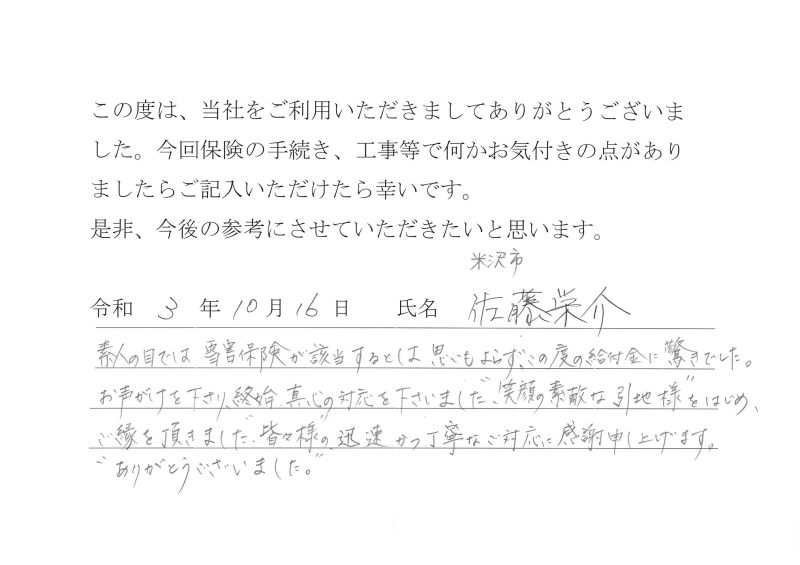 この度は、当社をご利用いただきましてありがとうございま
した。今回保険の手続き、工事等で何かお気付きの点があり
ましたらご記入いただけたら幸いです。
是非、今後の参考にさせていただきたいと思います。
米沢市
令和 3 年 10 月 16 日 氏名 佐藤栄介
素人の目では雪害保険が該当するとは思いもよらず、この度の給付金に驚きでした。
お声がけを下さり、終始、真心の対応を下さいました"笑顔の素敵な引地様"をはじめ、
ご縁を頂きました"皆々様"の迅速かつ丁寧なご対応に感謝申し上げます。
"ありがとうございました。"